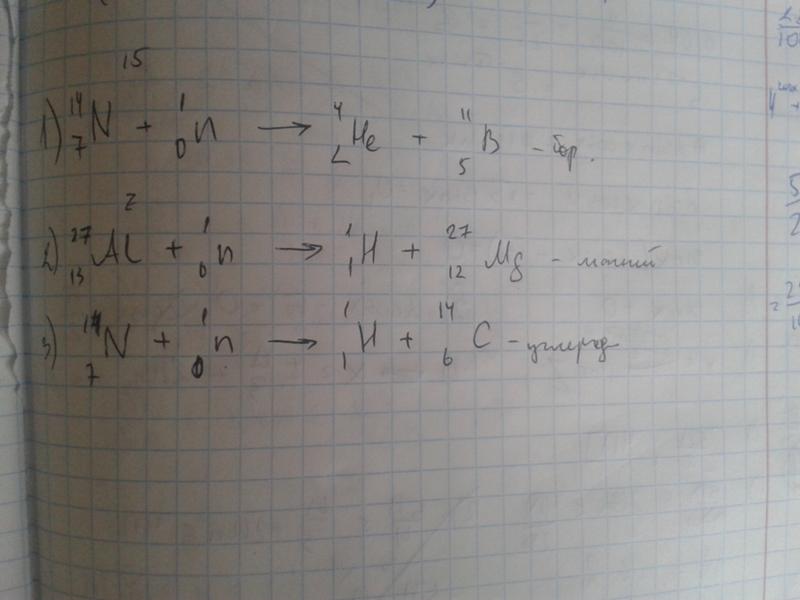 15
1) ¹⁴₇N + ¹₀n → ⁴₂He + ¹¹₅B – бор.
2
2) ²⁷₁₃Al + ¹₀n → ¹₁H + ²⁷₁₂Mg – магний
3) ¹⁴₇N + ¹₀n → ¹₁H + ¹⁴₆C – углерод